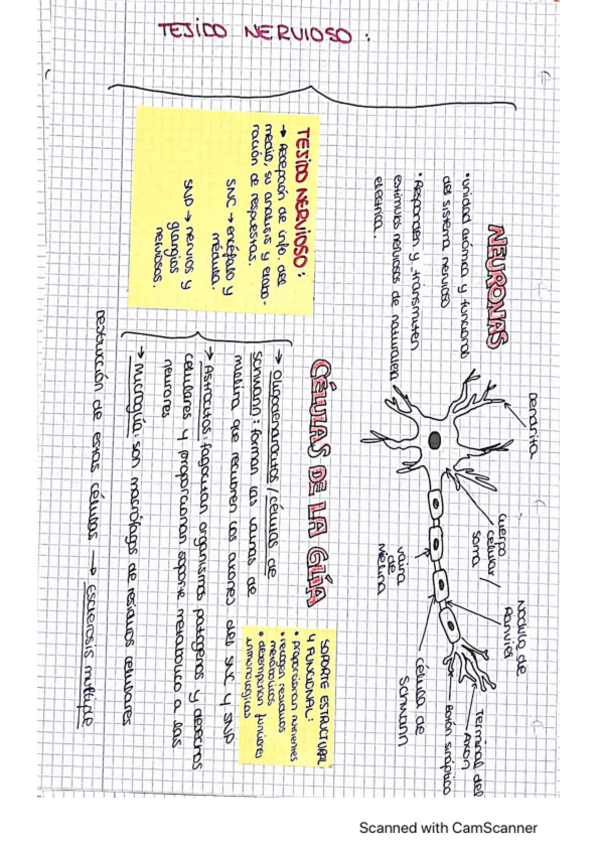 TEJIDO NERVIOSO:
TEJIDO NERVIOSO:
→ Recepción de info. del
medio, su analisis y elabo-
ración de respuestas.
SNC → encéfalo y
médula.
SNP → nervios y
glanglios
nerviosos.
NEURONAS
• unidad atómica y funcional
del sistema nervioso
• Responden y transmiten
estimulos nerviosos de naturaleza
electrica.
Dendrita
cuerpo
celular /
soma
Nodulo de
Ranvier
Terminal del
Axon
Botón sináptico
célula de
Schwann
vaina
de
Mielina
CÉLULAS DE LA GLÍA
SOPORTE ESTRUCTURAL
Y FUNCIONAL:
• proporcionan nutrientes
• recogen residuos
metabolicos
• desempeñan funciones
inmunologicas
→ Oligodendrocitos / células de
Schwann: forman las vainas de
mielina que recubren los axones del SNC y SNP
→ Astrocitos: fagocitan organismos patógenos y desechos
celulares y proporcionan soporte metabolico a las
neuronas
→ Microglía: son macrófagos de residuos celulares
Destrucción de estas células → Esclerosis multiple
Scanned with CamScanner